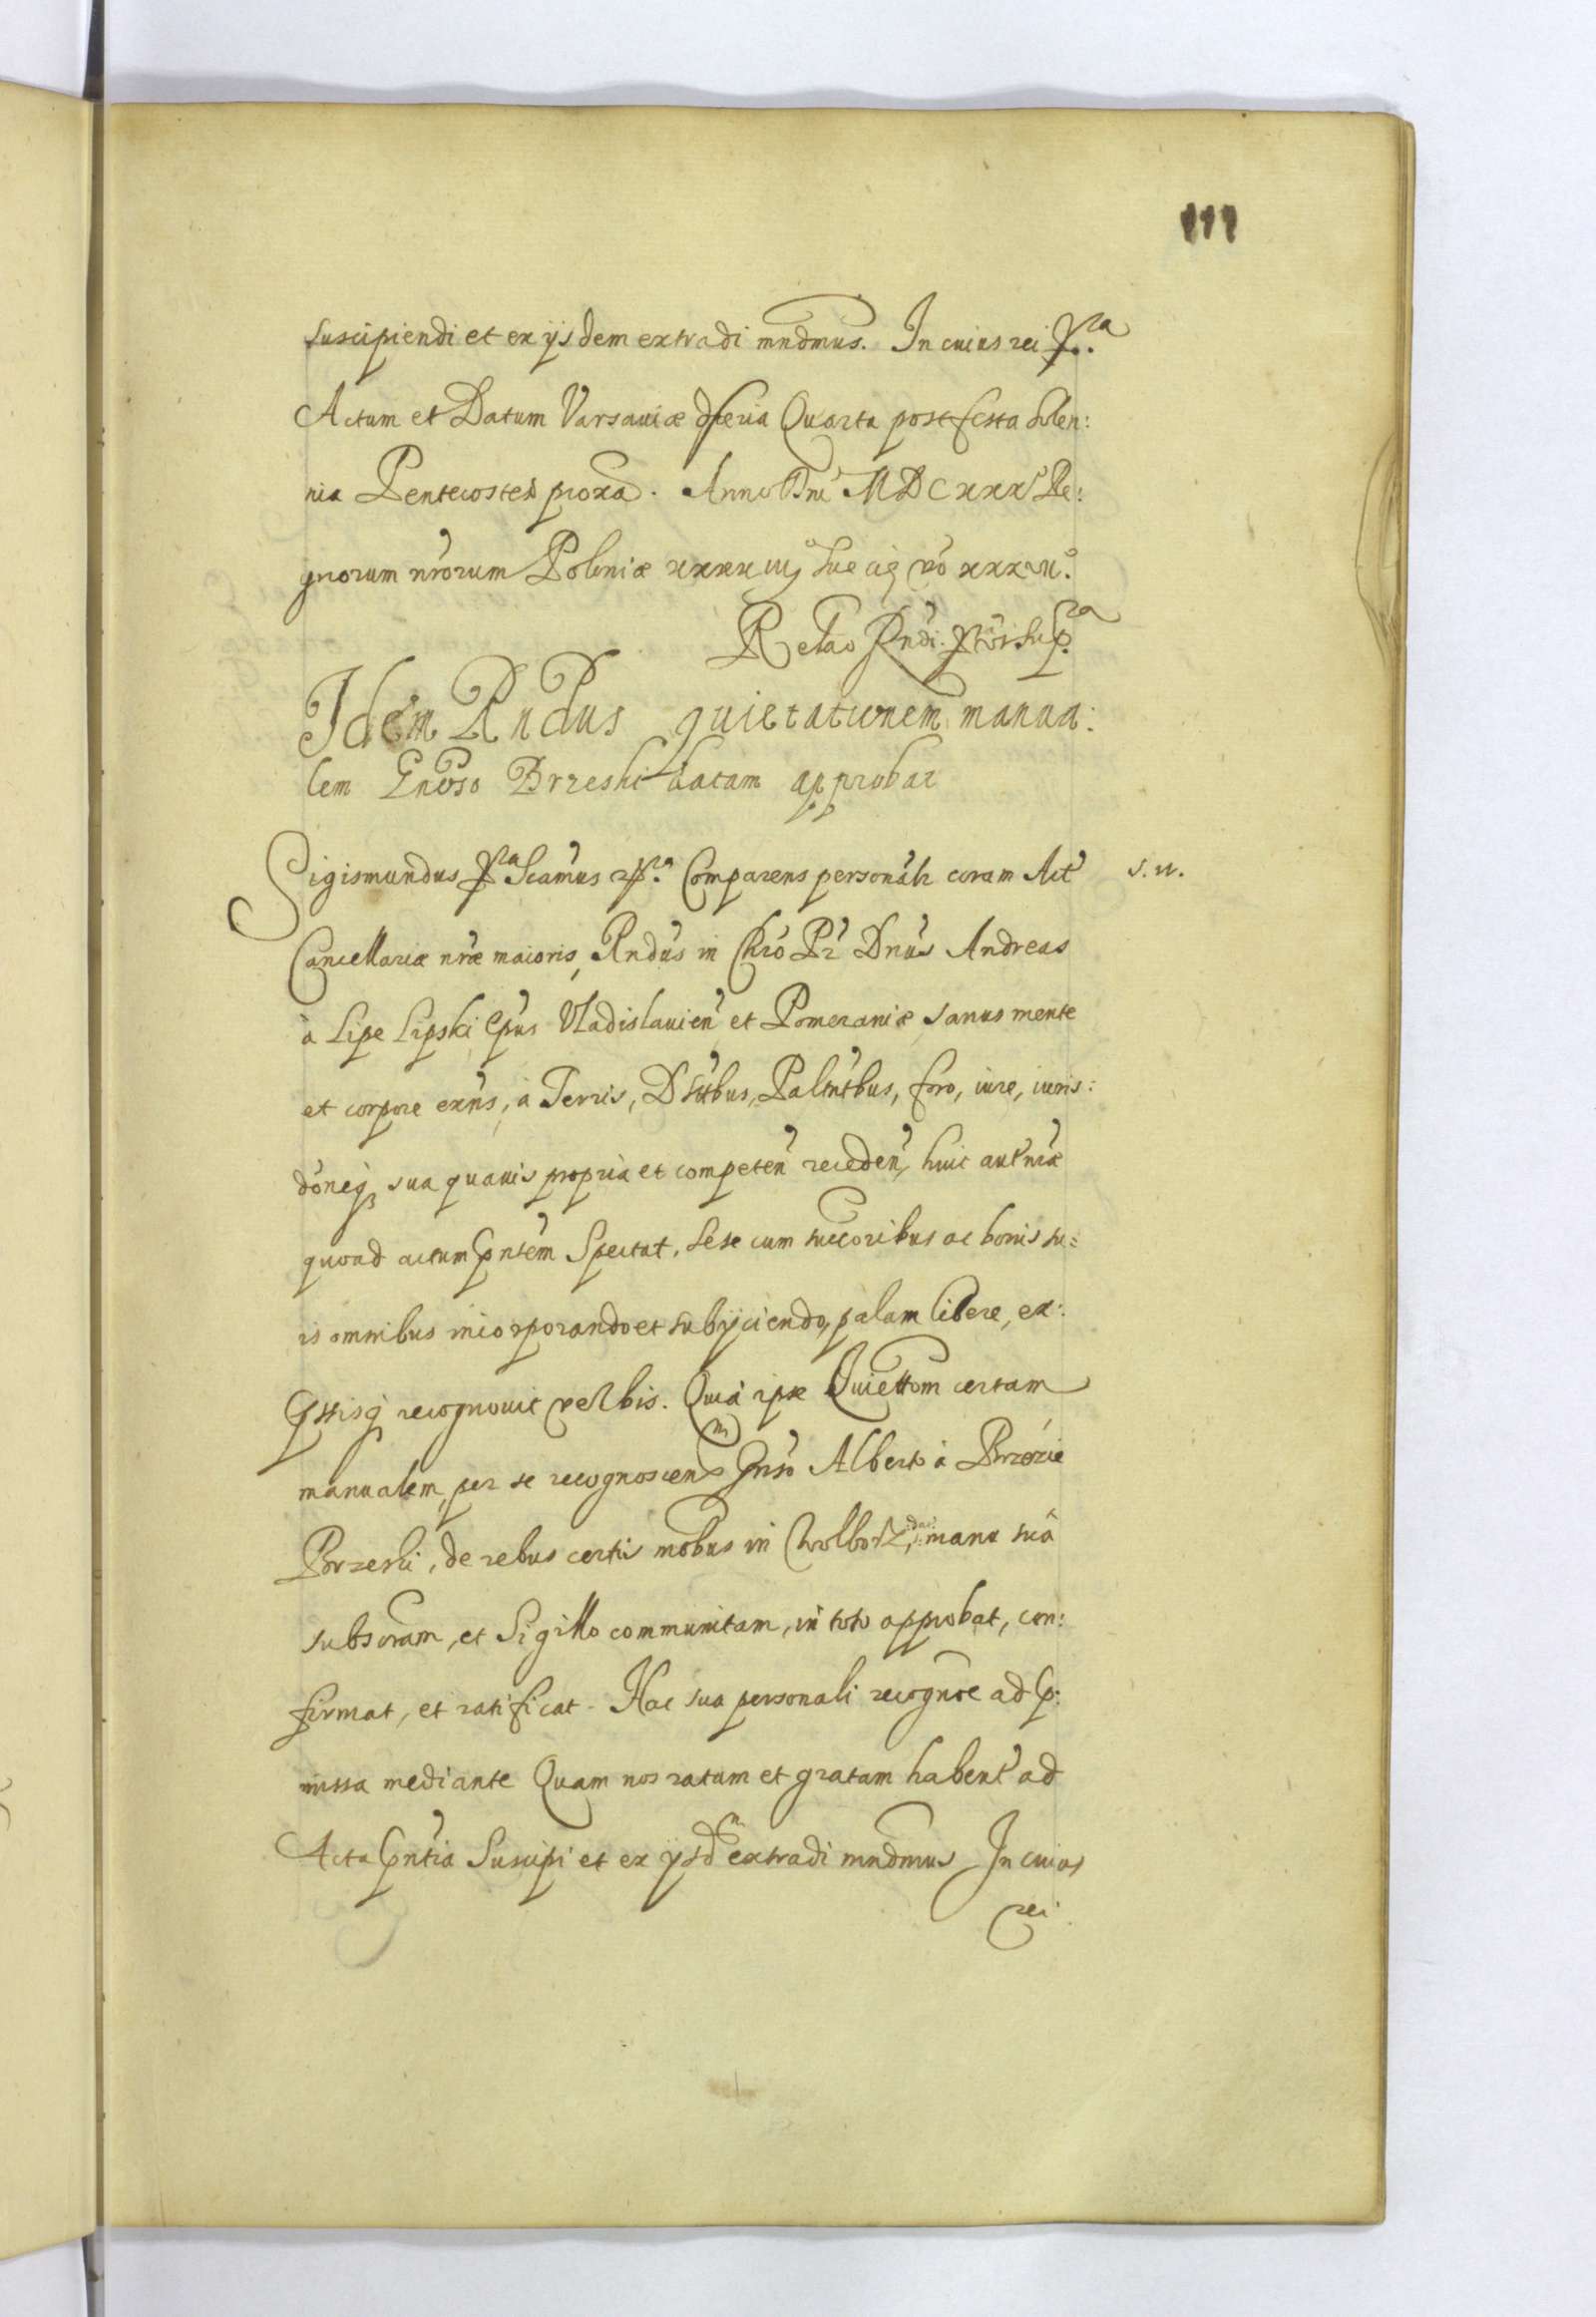 111
suscipiendi et ex ijsdem extradi mndmus. In cuius rei pra.
Actum et Datum Varsauiæ feria Quarta post festa solen:
nia Pentecostes proxa. Anno Dni MDCXXX Re:
gnorum nrorum Poloniæ xxxxiij Sueciæ vo xxxvii.
Relao Rndi prois supra
Idem Rndus quietationem manua:
lem Gnoso Brzeski datam approbat
Sigismundus pra Scamus etc. pra. Comparens personalr coram Act
s. n.
Cancellariæ nræ maioris, Rndus in Chro Pr Dnus Andreas
à Lipe Lipski Epus Vladislauien et Pomeraniæ sanus mente
et corpore exns, à Terris, Dstbus, Paltntbus, foro, iure, iuris:
doneq sua quauis propria et competen receden, huic aut nræ
quoad actum pntem spectat, sese cum succoribus ac bonis su:
is omnibus incorporando et subijciendo, palam libere, ex:
psstisq recognouit verbis. Quia ipse Quiettom certam
manualem per se recognoscen Gnso Alberto à Brzezie
Brzeski, de rebus certis mobus in Wolborz, manu suâ
subscram, et Sigillo communitam, in toto approbat, con:
firmat, et ratificat. Hac sua personali recogne ad p:
missa mediante Quam nos ratam et gratam habent ad
Acta pntia Suscipi et ex ijsdm extradi mndmus In cuius
rei